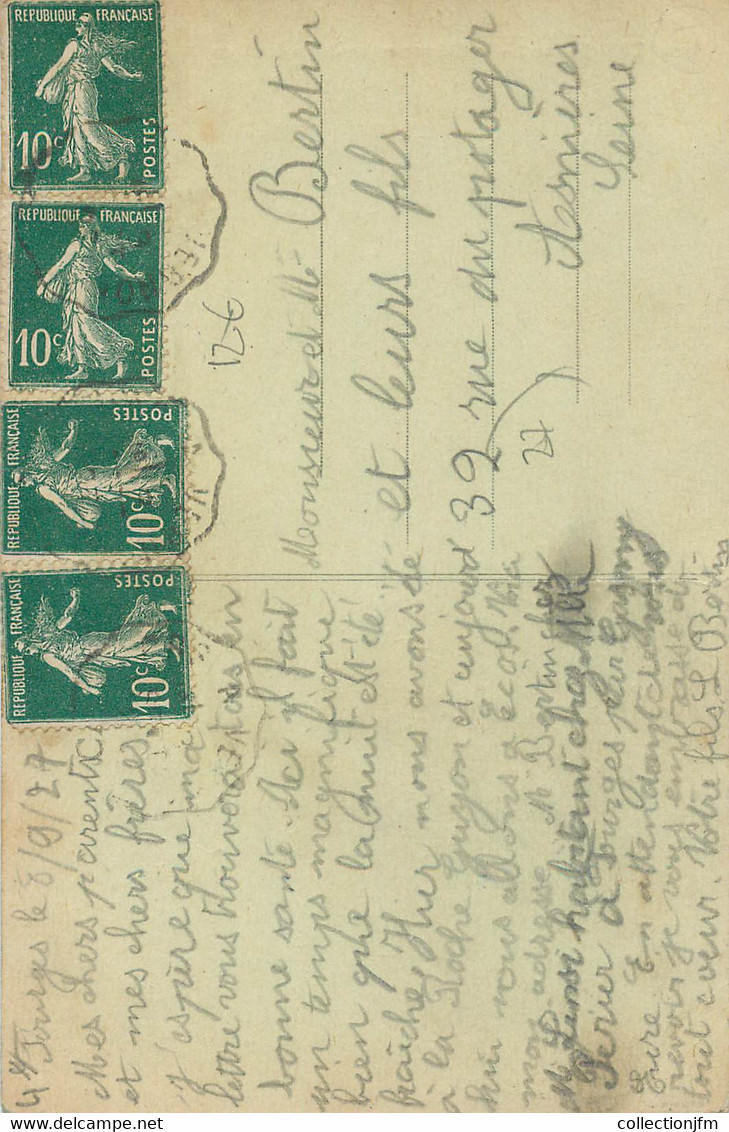 Fourges le 8/9/27
Mes chers parents
et mes chers frères
J'espère que ma
lettre vous trouvera tous en
bonne santé. Ici il fait
un temps magnifique
bien que la nuit est été
fraîche. Hier nous avons été
à la Roche Guyon et aujourd
hui nous allons à Ecos. Voici
mon adresse M Bertin chez
habitant chez Mme
à Fourges par Gasny
Eure En attendant de vous
revoir je vous embrasse de
tout cœur. Votre fils L Bertin
Monsieur et Mme Bertin
et leurs fils
39 rue du potager
Asnières
Seine
126
27
REPUBLIQUE FRANÇAISE
10c POSTES
REPUBLIQUE FRANÇAISE
10c POSTES
REPUBLIQUE FRANÇAISE
10c POSTES
REPUBLIQUE FRANÇAISE
10c POSTES
www.delcampe.net
collectionjfm